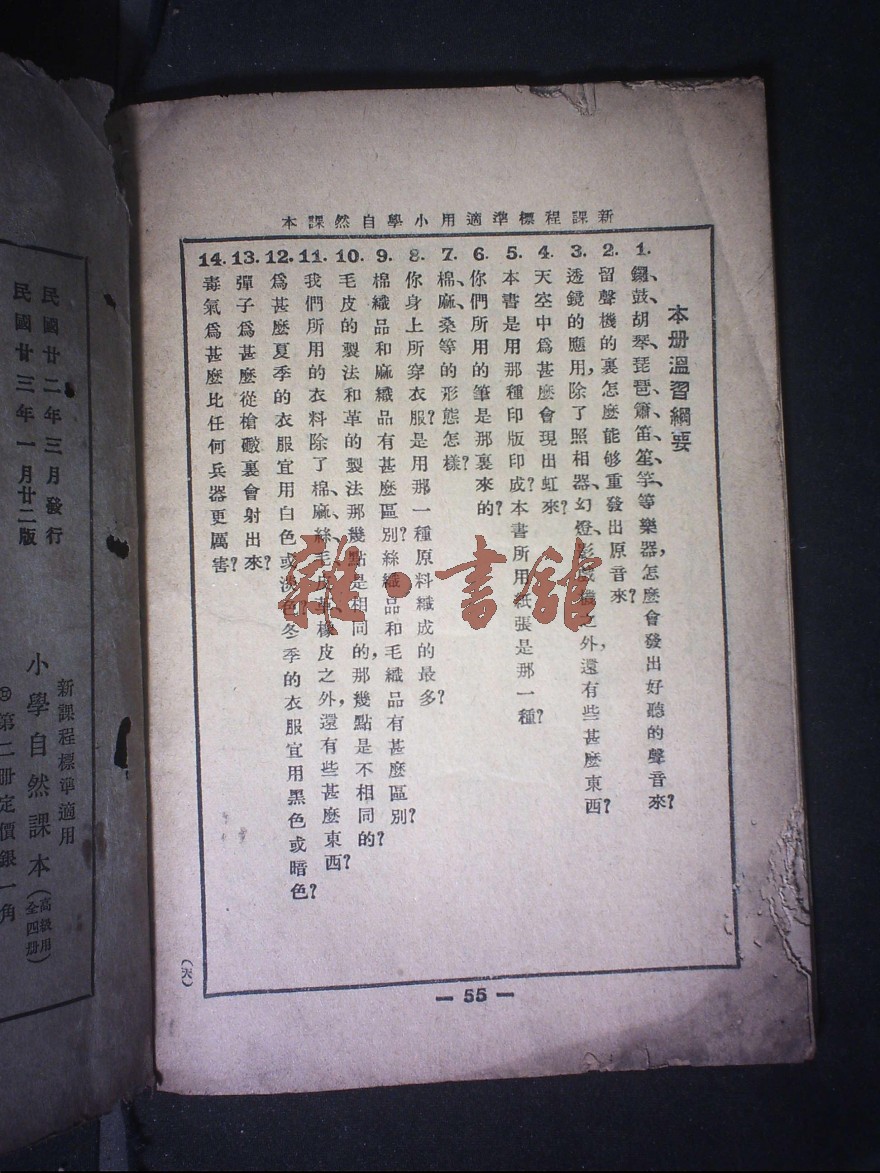 新課程標準適用小學自然課本
本册溫習綱要
1. 鑼、鼓、胡琴、琵琶、簫、笛、笙、竽、等樂器,怎麼會發出好聽的聲音來?
2. 留聲機的裏怎麼能够重發出原音來?
3. 透鏡的應用,除了照相器、幻燈、影戲機之外,還有些甚麼東西?
4. 天空中爲甚麼會現出虹來?
5. 本書是用那種印版印成?本書所用紙張是那一種?
6. 你們所用的筆是那裏來的?
7. 棉、麻、桑等的形態怎樣?
8. 你身上所穿衣服?是用那一種原料織成的最多?
9. 棉織品和麻織品有甚麼區別?絲織品和毛織品有甚麼區別?
10. 毛皮的製法和革的製法那幾點是相同的,那幾點是不相同的?
11. 我們所用的衣料除了棉、麻、絲、毛、皮、革、橡皮之外,還有些甚麼東西?
12. 爲甚麼夏季的衣服宜用白色或淡色?冬季的衣服宜用黑色或暗色?
13. 彈子爲甚麼從槍礮裏會射出來?
14. 毒氣爲甚麼比任何兵器更厲害?
(天)
— 55 —
雜·書館
新課程標準適用
小學自然課本(高級用 全四册)
第二册定價銀一角
民國廿二年三月發行
民國廿三年一月廿二版